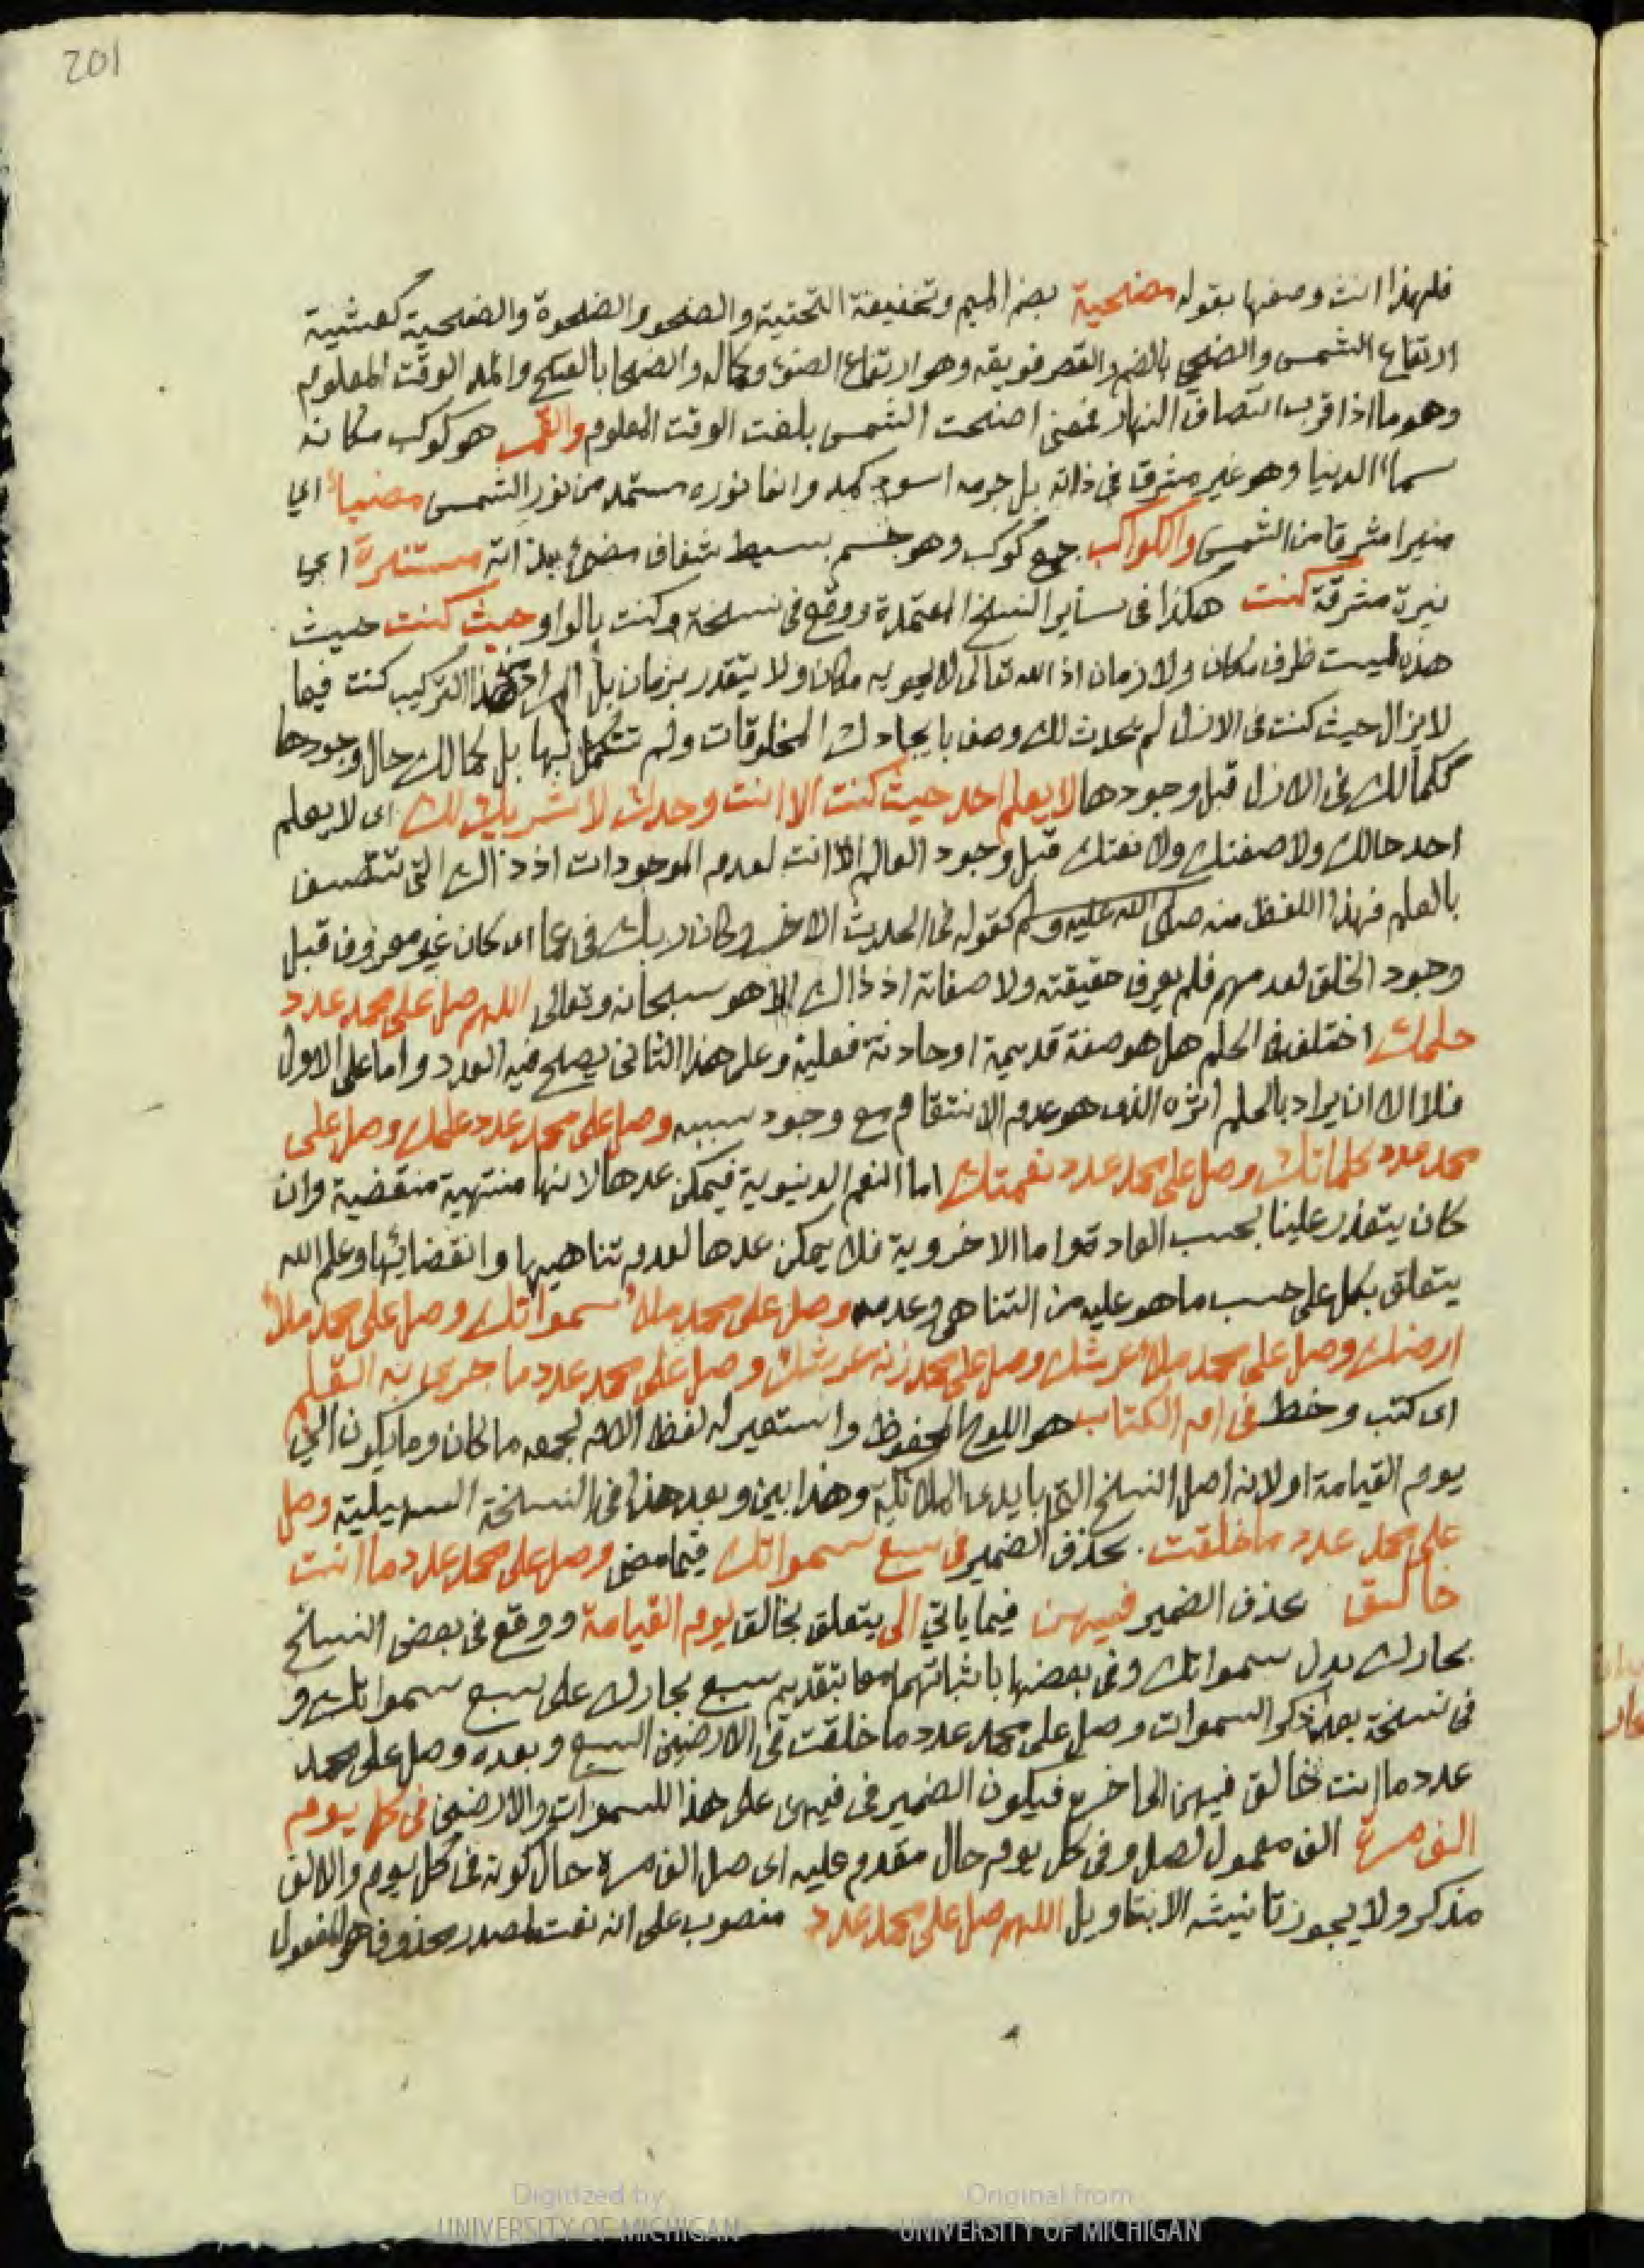 201
فلهذا انث وصفها بقوله مضحية بضم الميم وتخفيف التحتية والضحو والضحوة والضحية كعشية
ارتفاع الشمس والضحى بالضم والقصر فويقه وهو ارتفاع الضوء وكماله والضحا بالفتح والمد الوقت المعلوم
وهو ما اذا قرب انتصاف النهار فمعنى اضحت الشمس بلغت الوقت المعلوم والقمر هو كوكب مكانه
سماء الدنيا وهو غير مشرق في ذاته بل جرمه اسود كمد وانما نوره مستمد من نور الشمس مضيأ اي
منيرا مشرقا من الشمس والكواكب جمع كوكب وهو جسم بسيط شفاف مضئ بذاته مستنيرة اي
نيرة مشرقة كنت هكذا في سائر النسخ المعتمدة ووقع في نسخة وكنت بالواو حيث كنت حيث
هذه ليست ظرف مكان ولا زمان اذ الله تعالى لا يحويه مكان ولا يتقدر بزمان بل المراد بهذا التركيب كنت فيما
لا يزال حيث كنت في الازل لم يحدث لك وصف بايجادك المخلوقات ولم تتكمل بها بل كمالك حال وجودها
ككمالك في الازل قبل وجودها لا يعلم احد حيث كنت الا انت وحدك لا شريك لك اى لا يعلم
احد حالك ولا صفتك ولا نعتك قبل وجود العالم الا انت لعدم الموجودات اذ ذاك التي تتصف
بالعلم فهذا اللفظ منه صلى الله عليه وسلم كقوله في الحديث الاخر وكان ربك في عما اى كان غير معروف قبل
وجود الخلق لعدمهم فلم يعرف حقيقته ولا صفاته اذ ذاك الا هو سبحانه وتعالى اللهم صل على محمد عدد
حلمك اختلف في الحلم هل هو صفة قديمة او حادثة فعلية وعلى هذا الثاني يصلح فيه العدد واما على الاول
فلا الا ان يراد بالحلم اثره الذى هو عدم الانتقام مع وجود سببه وصل على محمد عدد علمك وصل على
محمد عدد كلماتك وصل على محمد عدد نعمتك اما النعم الدنيوية فيمكن عدها لانها منتهية منقضية وان
كان يتعذر علينا بحسب العادة واما الاخروية فلا يمكن عدها لعدم تناهيها وانقضائها وعلم الله
يتعلق بكل على حسب ما هو عليه من التناهى وعدمه وصل على محمد ملأ سمواتك وصل على محمد ملأ
ارضك وصل على محمد ملأ عرشك وصل على محمد زنة عرشك وصل على محمد عدد ما جرى به القلم
اى كتب وخط في ام الكتاب هو اللوح المحفوظ واستعير له لفظ الام لجمعه ما كان وما يكون الي
يوم القيامة او لانه اصل النسخ التي بايدى الملائكة وهذا ابين وبعد هذا في النسخة السهيلية وصل
على محمد عدد ما خلقت بحذف الضمير في سبع سمواتك فيما مضى وصل على محمد عدد ما انت
خالق بحذف الضمير فيهن فيما ياتي الى يتعلق بخالق يوم القيامة ووقع في بعض النسخ
بحارك بدل سمواتك وفي بعضها باثباتهما معا بتقديم سبع بحارك على سبع سمواتك و
في نسخة بعد ذكر السموات وصل على محمد عدد ما خلقت في الارضين السبع وبعده وصل على محمد
عدد ما انت خالق فيهن الى اخره فيكون الضمير في فيهن على هذا للسموات والارضين في كل يوم
الف مرة الف معمول لصل وفي كل يوم حال مقدم عليه اى صل الف مرة حال كونه في كل يوم والالف
مذكر ولا يجوز تانيثه الا بتاويل اللهم صل على محمد عدد منصوب على انه نعت لمصدر محذوف هو المفعول
Digitized by
UNIVERSITY OF MICHIGAN
Original from
UNIVERSITY OF MICHIGAN